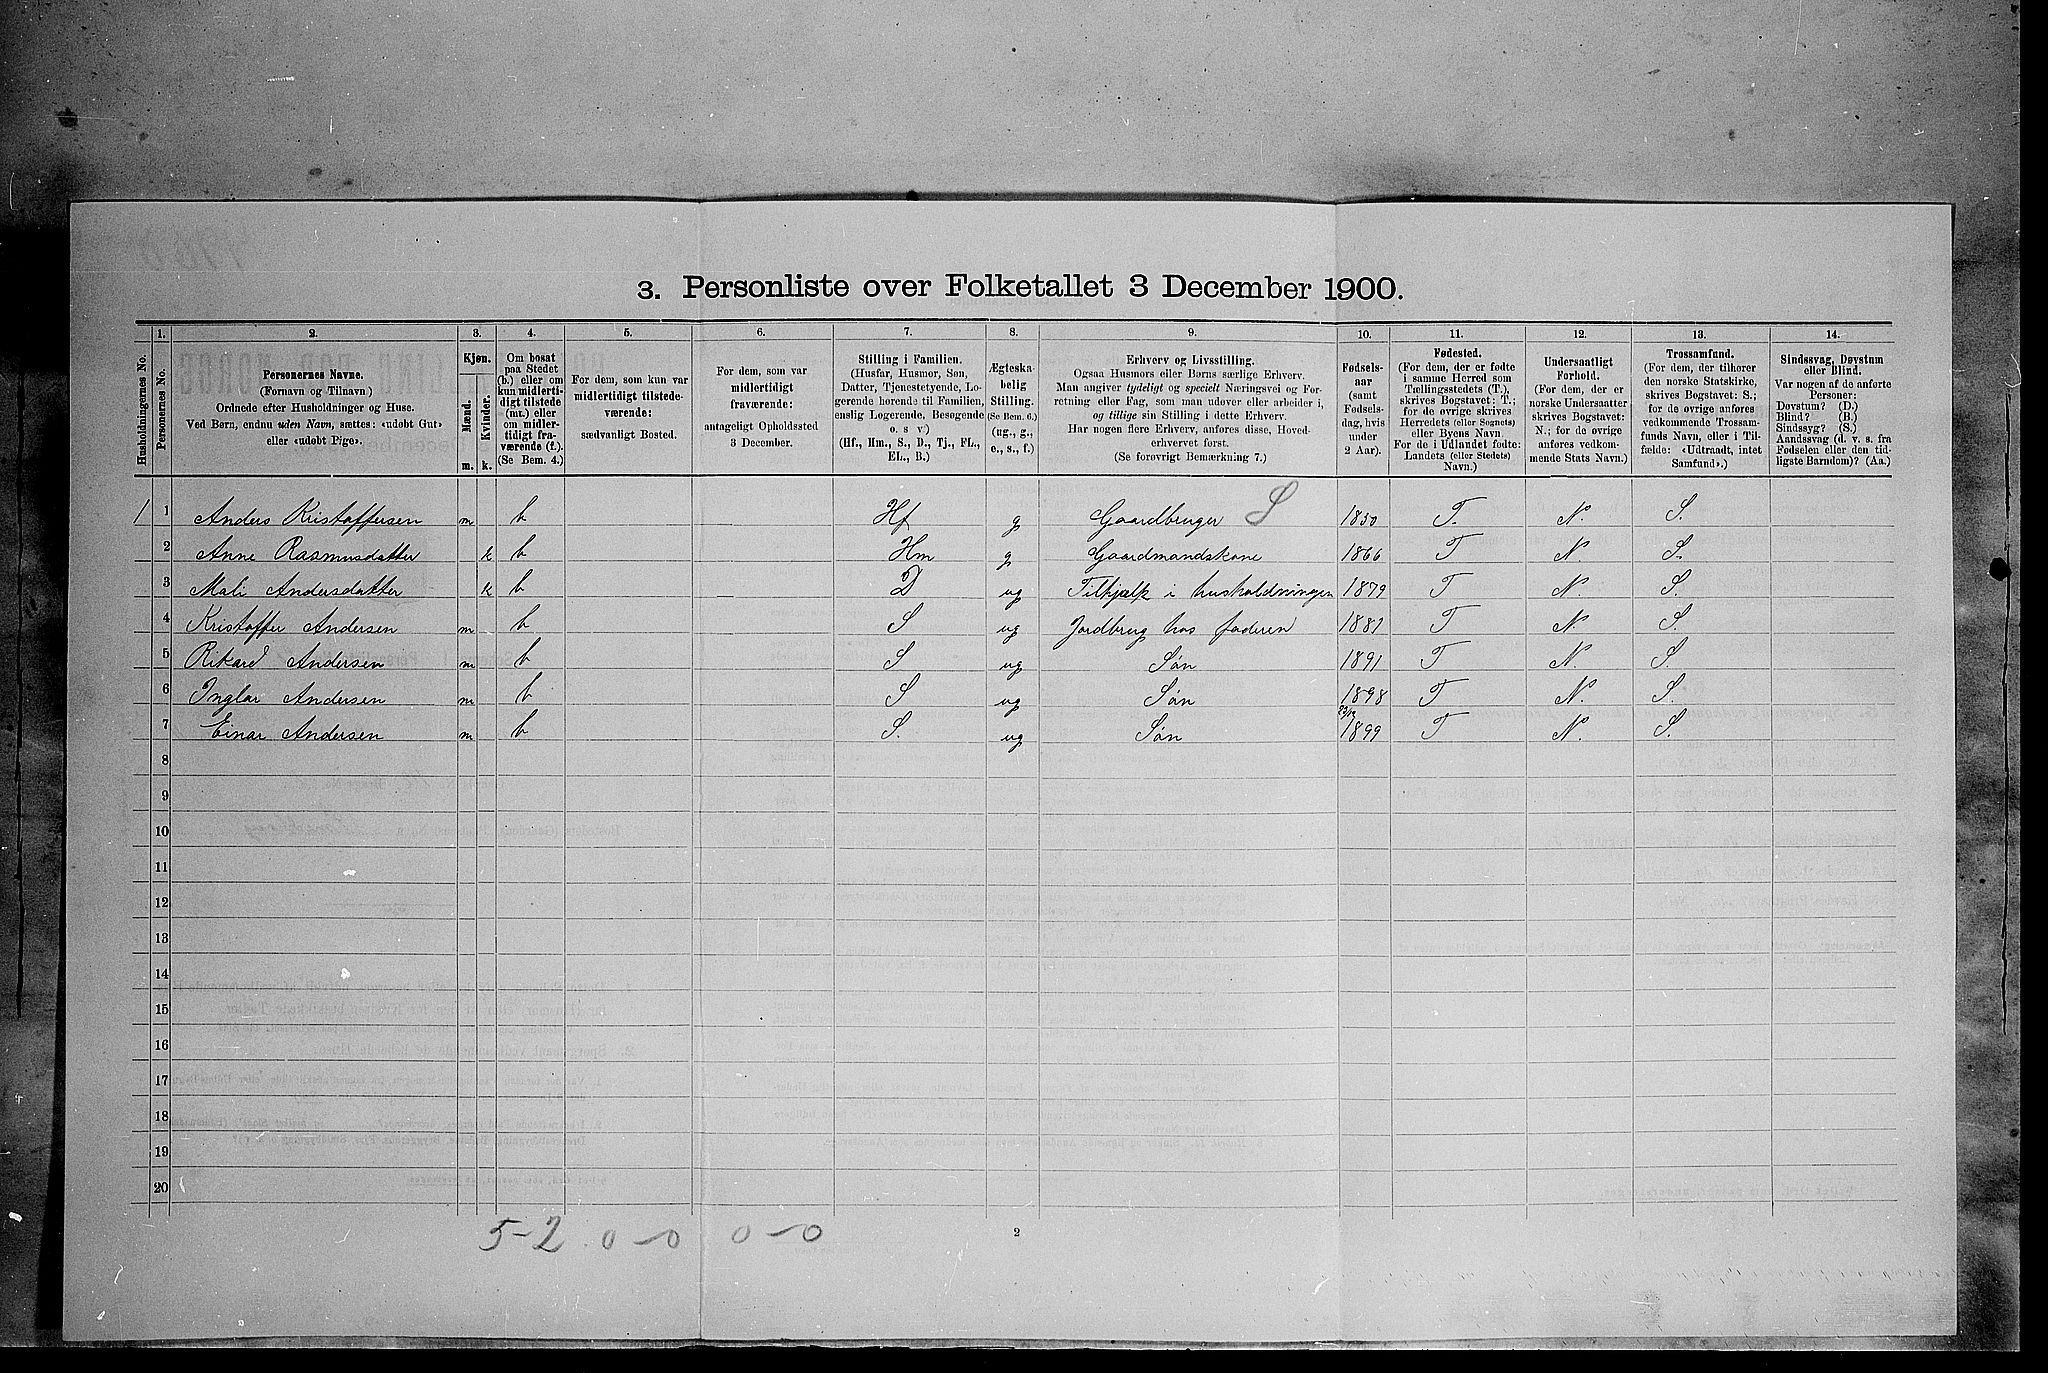 3. Personliste over Folketallet 3 December 1900.
1. 2. 3. 4. 5. 6. 7. 8. 9. 10. 11. 12. 13. 14.
Husholdningernes No.
Personernes No.
Personernes Navne.
(Fornavn og Tilnavn)
Ordnede efter Husholdninger og Huse.
Ved Børn, endnu uden Navn, sættes: «udøbt Gut»
eller «udøbt Pige».
Kjøn.
Mænd.
Kvinder.
m. k.
Om bosat
paa Stedet
(b.) eller om
kun midlerti-
digt tilstede
(mt.) eller
om midler-
tidigt fra-
værende (f.).
(Se Bem. 4.)
For dem, som kun var
midlertidigt tilstede-
værende:
sædvanligt Bosted.
For dem, som var
midlertidigt
fraværende:
antageligt Opholdssted
3 December.
Stilling i Familien.
(Husfar, Husmor, Søn,
Datter, Tjenestetyende, Lo-
gerende hørende til Familien,
enslig Logerende, Besøgende
o. s v.)
(Hf., Hm., S., D., Tj., FL.,
EL., B.)
Ægteska-
belig
Stilling.
(Se Bem. 6.)
(ug., g.,
e., s., f.)
Erhverv og Livsstilling.
Ogsaa Husmors eller Børns særlige Erhverv.
Man angiver tydeligt og specielt Næringsvei og For-
retning eller Fag, som man udøver eller arbeider i,
og tillige sin Stilling i dette Erhverv.
Har nogen flere Erhverv, anføres disse, Hoved-
erhvervet først.
(Se forøvrigt Bemærkning 7.)
Fødsels-
aar
(samt
Fødsels-
dag, hvis
under
2 Aar).
Fødested.
(For dem, der er fødte
i samme Herred som
Tællingsstedets (T.),
skrives Bogstavet: T.;
for de øvrige skrives
Herredets (eller Sognets)
eller Byens Navn.
For de i Udlandet fødte:
Landets (eller Stedets)
Navn.)
Undersaatligt
Forhold.
(For dem, der er
norske Undersaatter
skrives Bogstavet:
N.; for de øvrige
anføres vedkom-
mende Stats Navn.)
Trossamfund.
(For dem, der tilhører
den norske Statskirke,
skrives Bogstavet: S.;
for de øvrige anføres
vedkommende Trossam-
funds Navn, eller i Til-
fælde: «Udtraadt, intet
Samfund».)
Sindssvag, Døvstum
eller Blind.
Var nogen af de anførte
Personer:
Døvstum? (D.)
Blind? (B.)
Sindssyg? (S.)
Aandssvag (d. v. s. fra
Fødselen eller den tid-
ligste Barndom)? (Aa.)
1 1 Anders Kristoffersen m b Hf g Gaardbruger S 1850 T. N. S.
2 Anne Rasmusdatter k b Hm g Gaardmandskone 1866 T N. S.
3 Mali Andersdatter k b D ug Tilhjælp i husholdningen 1879 T N. S.
4 Kristoffer Andersen m b S ug Jordbrug hos faderen 1881 T N S.
5 Rikard Andersen m b S ug Søn 1891 T N. S.
6 Inglar Andersen m b S ug Søn 1898 T N. S.
7 Einar Andersen m b S. ug Søn 1899 T N. S.
8
9
10
11
12
13
14
15
16
17
18
19
20
5-2 0-0 0-0
2